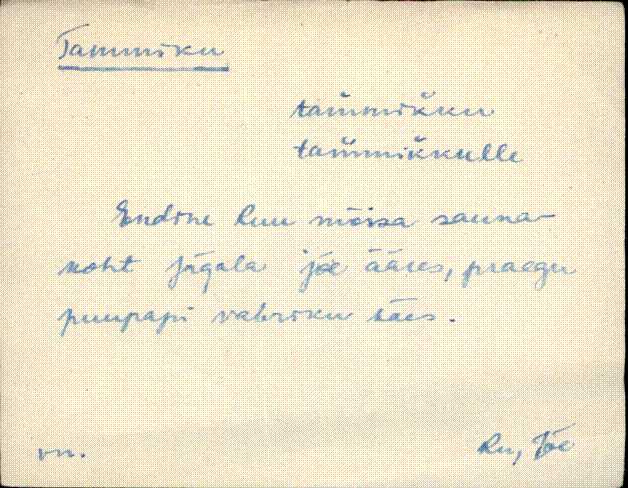 Tammiku
tammikku
tammikkulle
Endine Ruu mõisa sauna-
koht Jägala jõe ääres, praegu
puupapi vabriku täes.
vn.
Ru, Jõe